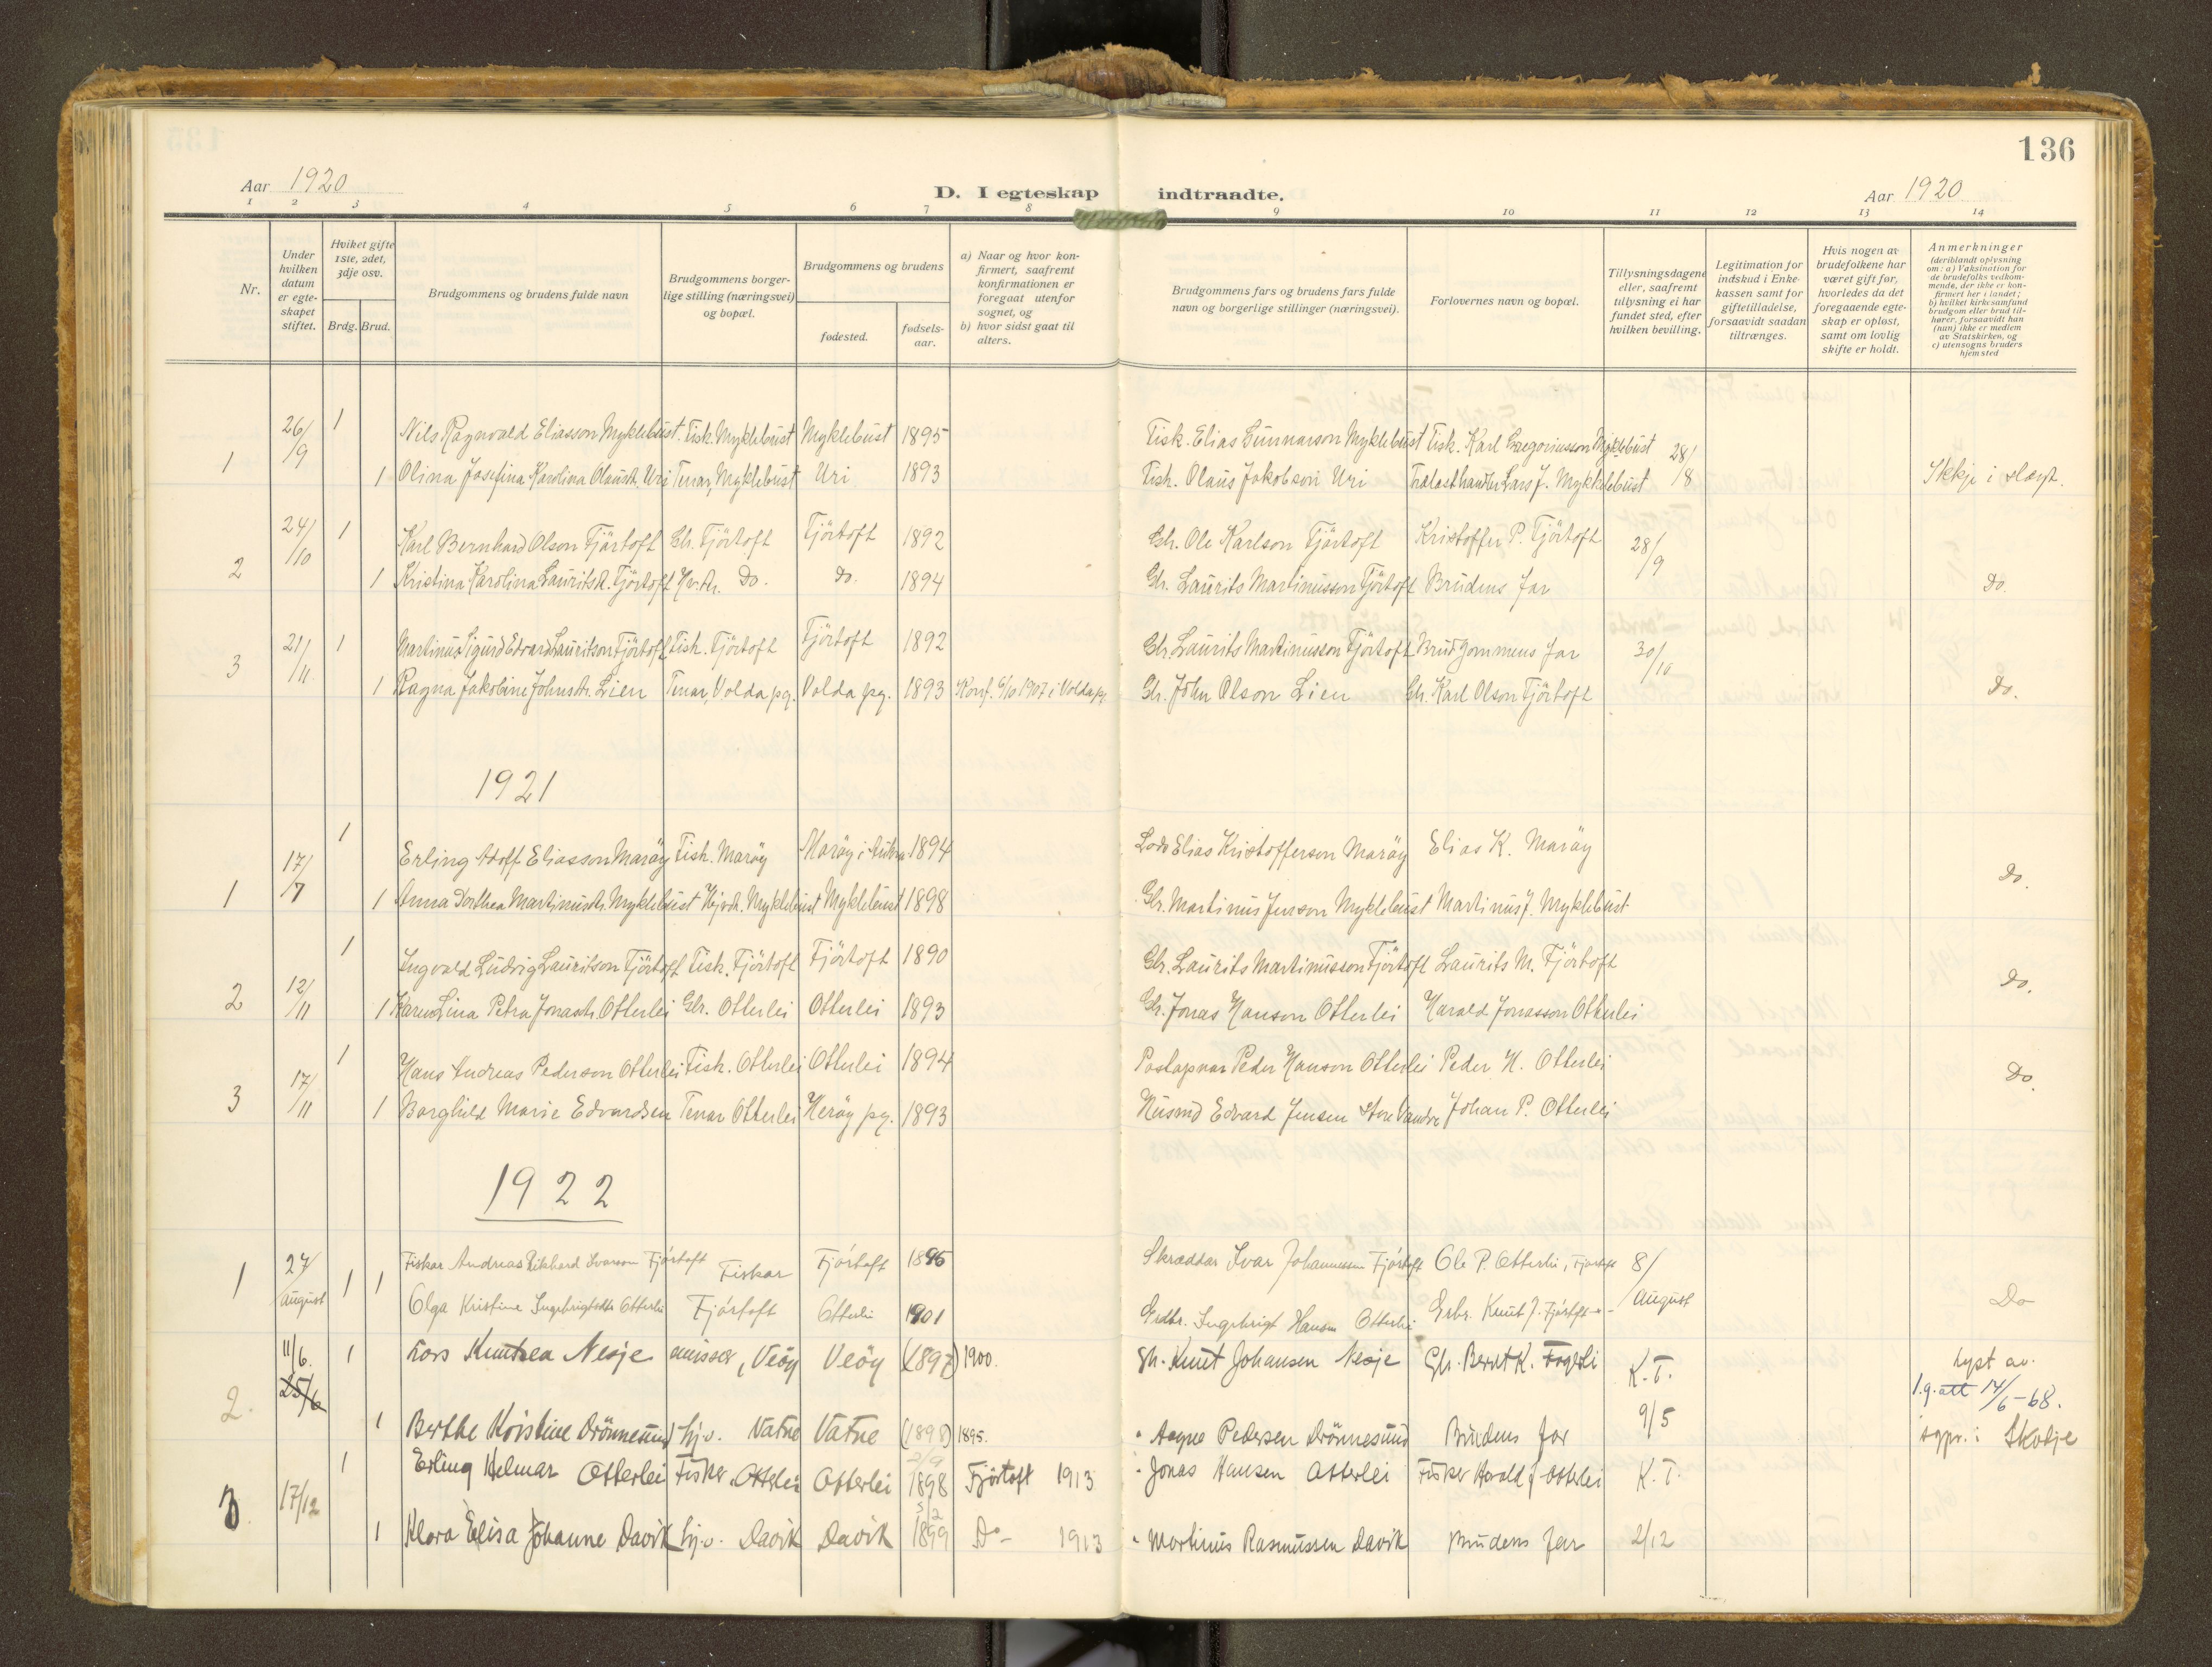 136
Aar 1920
D. I egteskap indtraadte.
Aar 1920
1 2 3 4 5 6 7 8 9 10 11 12 13 14
Nr.
Under hvilken datum er egteskapet stiftet.
Hviket gifte 1ste, 2det, 3dje osv.
Brdg. Brud.
Brudgommens og brudens fulde navn
Brudgommens borgerlige stilling (næringsvei) og bopæl.
Brudgommens og brudens
fødested.
fødselsaar.
a) Naar og hvor konfirmert, saafremt konfirmationen er foregaat utenfor sognet, og
b) hvor sidst gaat til alters.
Brudgommens fars og brudens fars fulde navn og borgerlige stillinger (næringsvei).
Forlovernes navn og bopæl.
Tillysningsdagene eller, saafremt tillysning ei har fundet sted, efter hvilken bevilling.
Legitimation for indskud i Enkekassen samt for giftetilladelse, forsaavidt saadan tiltrænges.
Hvis nogen av brudefolkene har været gift før, hvorledes da det foregaaende egteskap er opløst, samt om lovlig skifte er holdt.
Anmerkninger (deriblandt oplysning om: a) Vaksination for de brudefolks vedkommende, der ikke er konfirmert her i landet; b) hvilket kirkesamfund brudgom eller brud tilhører, forsaavidt han (hun) ikke er medlem av Statskirken, og c) utensogns bruders hjemsted
26/9 1 Nils Ragnvald Eliasson Myklebust Fisk. Myklebust Myklebust 1895 Fisk. Elias Gunnarson Myklebust Fisk. Karl Gregoriusson Myklebust 28/8
1 1 Olina Josefina Karolina Olausdt. Uri Tenar, Myklebust Uri 1893 Fisk. Olaus Jakobson Uri Trælasthandler Lars J. Myklebust Ikkje i slægt.
24/10 1 Karl Bernhard Olson Fjörtoft Gbr. Fjörtoft Fjörtoft 1892 Gbr. Ole Karlson Fjörtoft Kristoffer P. Fjörtoft 28/9
2 1 Kristina Karolina Lauritsdt. Fjörtoft do. do. 1894 Gbr. Laurits Martinusson Fjörtoft Brudens far do.
21/11 1 Martinus Sigurd Edvard Lauritson Fjörtoft Fisk. Fjörtoft Fjörtoft 1892 Gbr. Laurits Martinusson Fjörtoft Brudgommens far 30/10
3 1 Ragna Jakobine Johnsdt. Lien Tenar, Volda pg. Volda pg. 1893 Konf. 6/10 1907 i Volda pg. Gbr. John Olson Lien Gbr. Karl Olson Fjörtoft do.
1921
17/7 1 Erling Adolf Eliasson Maröy Fisk. Maröy Maröy i Aukra 1894 Lods Elias Kristofferson Maröy Elias K. Maröy
1 1 Anna Dorthea Martinusdt. Myklebust Hjvdt. Myklebust Myklebust 1898 Gbr. Martinus Jenson Myklebust Martinus J. Myklebust do.
12/11 1 Ingvald Ludvig Lauritson Fjörtoft Fisk. Fjörtoft Fjörtoft 1890 Gbr. Laurits Martinusson Fjörtoft Laurits M. Fjörtoft
2 1 Karen Lina Petra Jonasdt. Otterlei Gbr. Otterlei Otterlei 1893 Gbr. Jonas Hanson Otterlei Harald Jonasson Otterlei do.
17/11 1 Hans Andreas Pederson Otterlei Fisk. Otterlei Otterlei 1894 Postapnar Peder Hanson Otterlei Peder H. Otterlei
3 1 Borghild Marie Edvardsen Tenar Otterlei Heröy pg. 1893 Husmd Edvard Jensen Johan P. Otterlei do
1922
1 27/August 1 1 Fiskar Andreas Rikhard Ivarson Fjörtoft Fiskar Fjörtoft 1895 Skræddar Ivar Johannessen Fjörtoft Ole P. Otterlei, Fjørtoft 8/August
Olga Kristine Ingebrigtsdtr Otterlei Fjörtoft Otterlei 1901 Grdbr. Ingebrigt Hansen Otterlei Grbr. Knut J. Fjörtoft Do
11/6. 25/6 1 Lars Knutsen Nesje Veöy Veöy (1897) 1900. Gbr. Knut Johansen Nesje Gbr. Berdt K. Fagerli K.T. lyst av. l.q. att 14/6-68.
2. 1 Berthe Kristine Drönnesund hj.v. Vatne Vatne (1898) 1895. " Aagne Pedersen Drönnesund Brudens far 9/5 i Skodje
17/12 1 Erling Helmar Otterlei Fisker Otterlei Otterlei 2/9 1898 Fjörtoft 1913 " Jonas Hansen Otterlei Fisker Harald J Otterlei K.T.
3 1 Klara Elisa Johanne Davik hj.v. Davik Davik 5/2 1899 Do- 1913 " Martinus Rasmussen Davik Brudens far 2/12